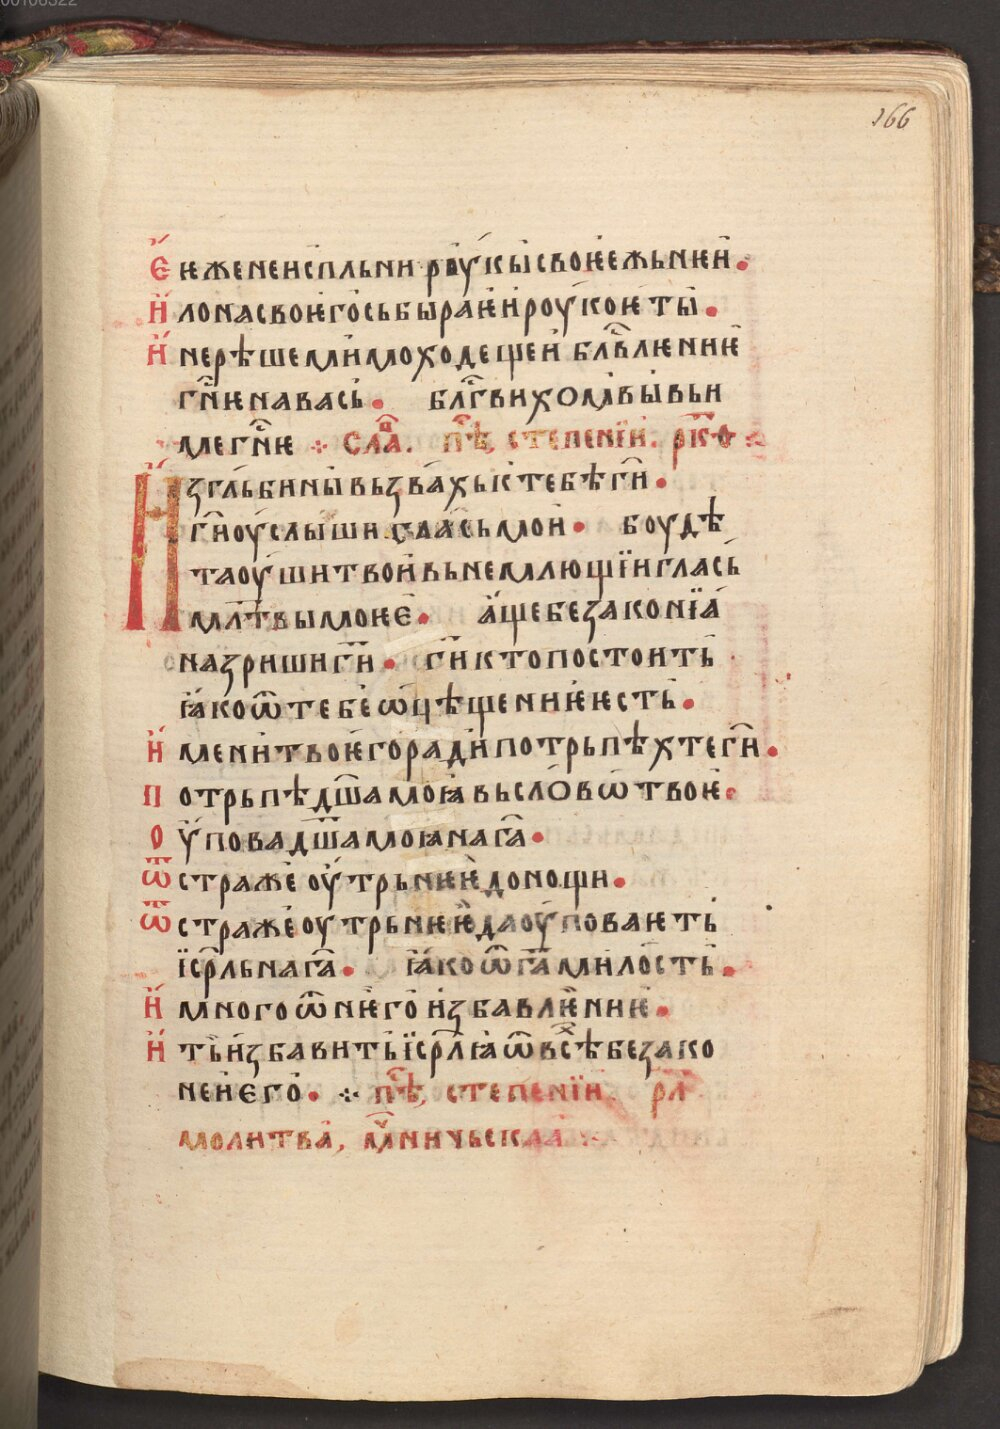 166
Е҆ ꙗже не испльни роукы свое҆ѥ жьнѥи҆.
И҆ лона своѥго съ бырає҆и҆ роукоѥты҆.
И҆ не рѣше ми҆моходещеи҆ блг҇влѥниѥ҆
гн҇ѥ на васъ. блг҇вихомь вы вьи
ме гн҇ѥ ⁘ сла҇в. пѣ҇с, степенїи. рк҇ѳ
Иꙁ гльбины вьꙁвахь к тебѣ ги҇.
ги҇ оуслыши глась мои. боудѣ
та оуши твои҆ вьнемлющїи глась
мл҇твы моѥе. а҆ще беꙁаконїа
наꙁриши ги҇. ги҇ кто постоить
ꙗко ѿ тебе ѡцѣщениѥ ѥсть.
И҆мени твоѥго ради потрьпѣх те ги҇.
Потрьпѣ дш҇а моꙗ вь слово твоѥ.
Оупова дш҇а моꙗ на га҇.
Ѿ страже оутрьниѥ до нощи.
Ѿ страже оутрьниѥ да оуповаѥть
їср҇ль на га҇. ꙗ҆ко ѿ га҇ милость.
И҆ много ѿ нѥго иꙁбавлѥниѥ.
И҆ ть иꙁбавить їср҇лꙗ ѿ всѣх беꙁако
неи его. ⁘ пѣ҇с, степенїи. рл҇
молитва, мч҇ничьскаа